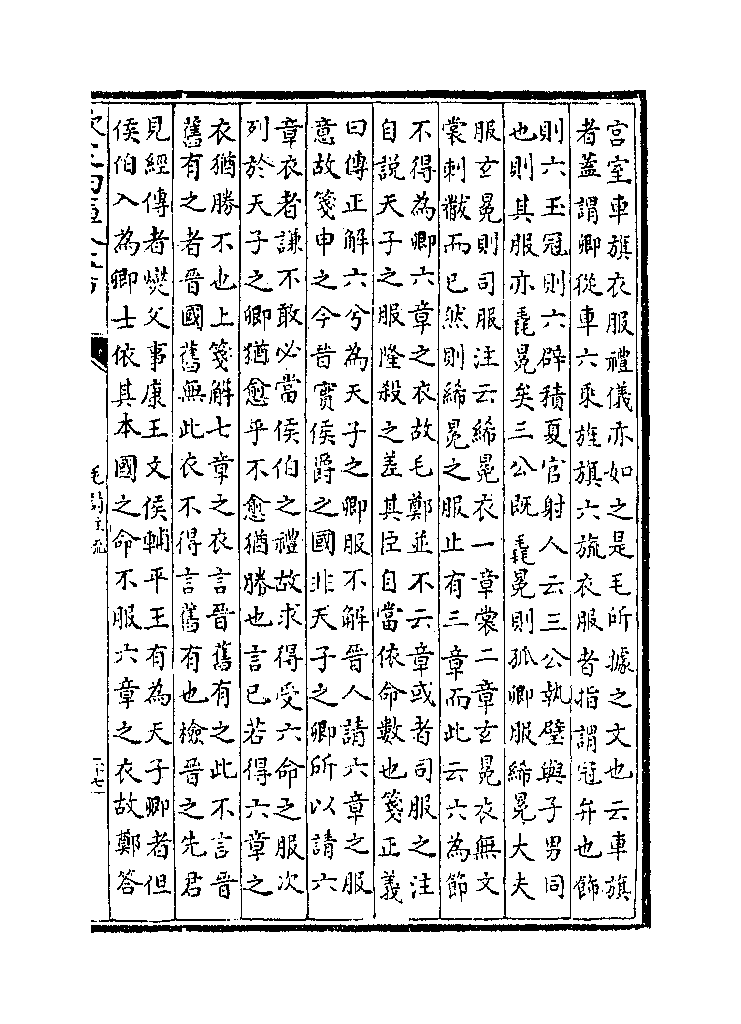 宫室車旗衣服禮儀亦如之是毛所據之文也云車旗
者蓋謂卿從車六乘旌旗六斿衣服者指謂冠弁也飾
則六玉冠則六辟積夏官射人云三公執璧與子男同
也則其服亦毳冕矣三公既毳冕則孤卿服絺冕大夫
服玄冕則司服注云絺冕衣一章裳二章玄冕衣無文
裳刺黻而已然則絺冕之服止有三章而此云六為節
不得為卿六章之衣故毛鄭並不云章或者司服之注
自說天子之服隆殺之差其臣自當依命數也箋正義
曰傳正解六兮為天子之卿服不解晉人請六章之服
意故箋申之今晉實侯爵之國非天子之卿所以請六
章衣者謙不敢必當侯伯之禮故求得受六命之服次
列於天子之卿猶愈乎不愈猶勝也言已若得六章之
衣猶勝不也上箋解七章之衣言晉舊有之此不言晉
舊有之者晉國舊無此衣不得言舊有也檢晉之先君
見經傳者燮父事康王文侯輔平王有為天子卿者但
侯伯入為卿士依其本國之命不服六章之衣故鄭答
毛詩注疏
二十七